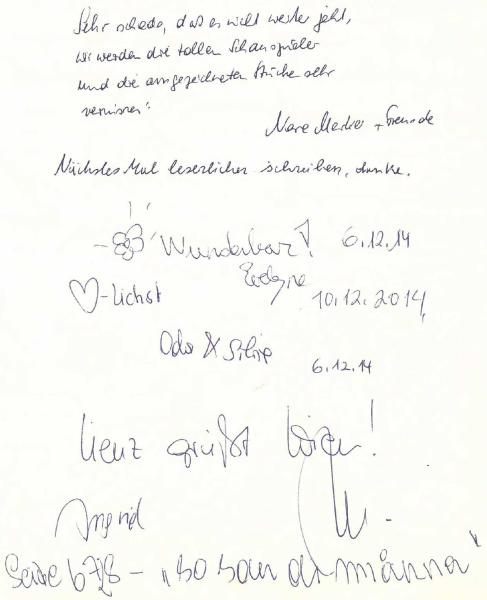 Sehr schade, daß es nicht weiter geht,
wir werden die tollen Schauspieler
und die ausgezeichneten Stücke sehr
vermissen!
+ Freunde
Nächstes Mal leserlicher schreiben, danke.
Wunderbar! 6.12.14
♡-lichst 10.12.2014
& Silvie 6.12.14
Lienz grüßt Wien!
Ingrid
Seite 678 - „so san di männer"